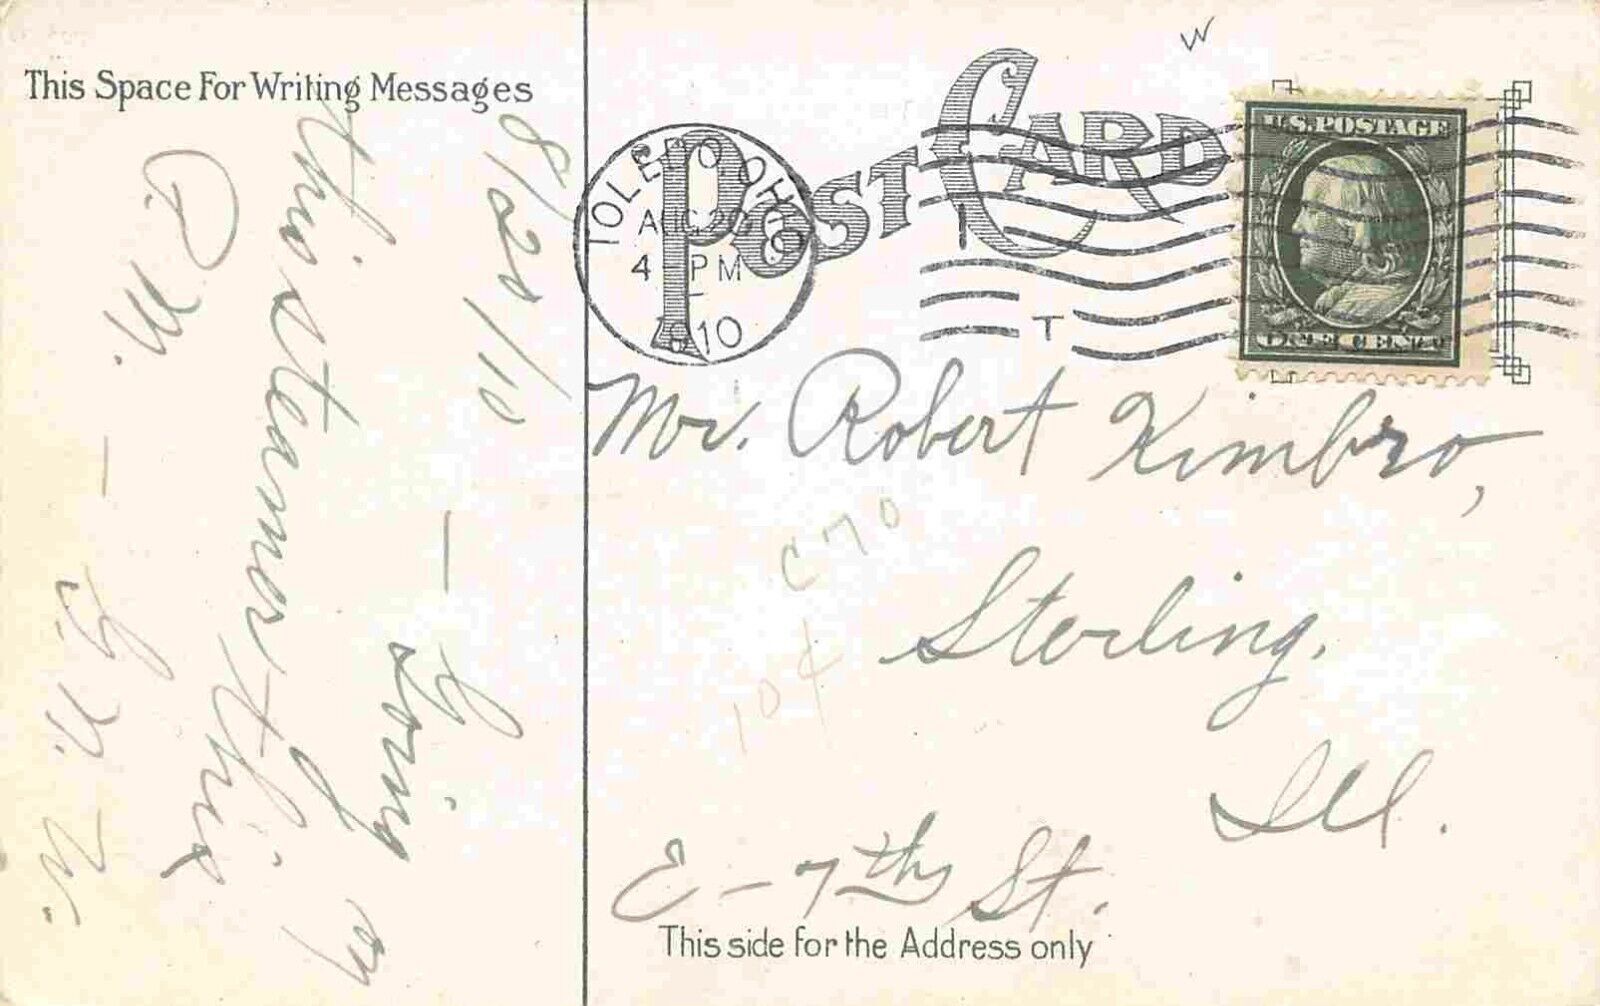 This Space For Writing Messages
8/20/10
Going on
this steamer this
P.M. —
POST CARD
TOLEDO OHIO
AUG 20
4 - PM
1910
T
U.S. POSTAGE
ONE CENT
W
Mr. Robert Kimbro,
C70
Sterling,
10¢
Ill.
E - 7th St.
This side for the Address only